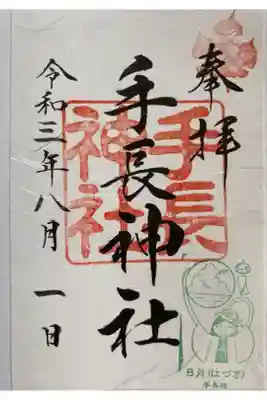 奉拝
手長神社
手長
神社
令和三年八月 一日
8月(はづき)
手長様